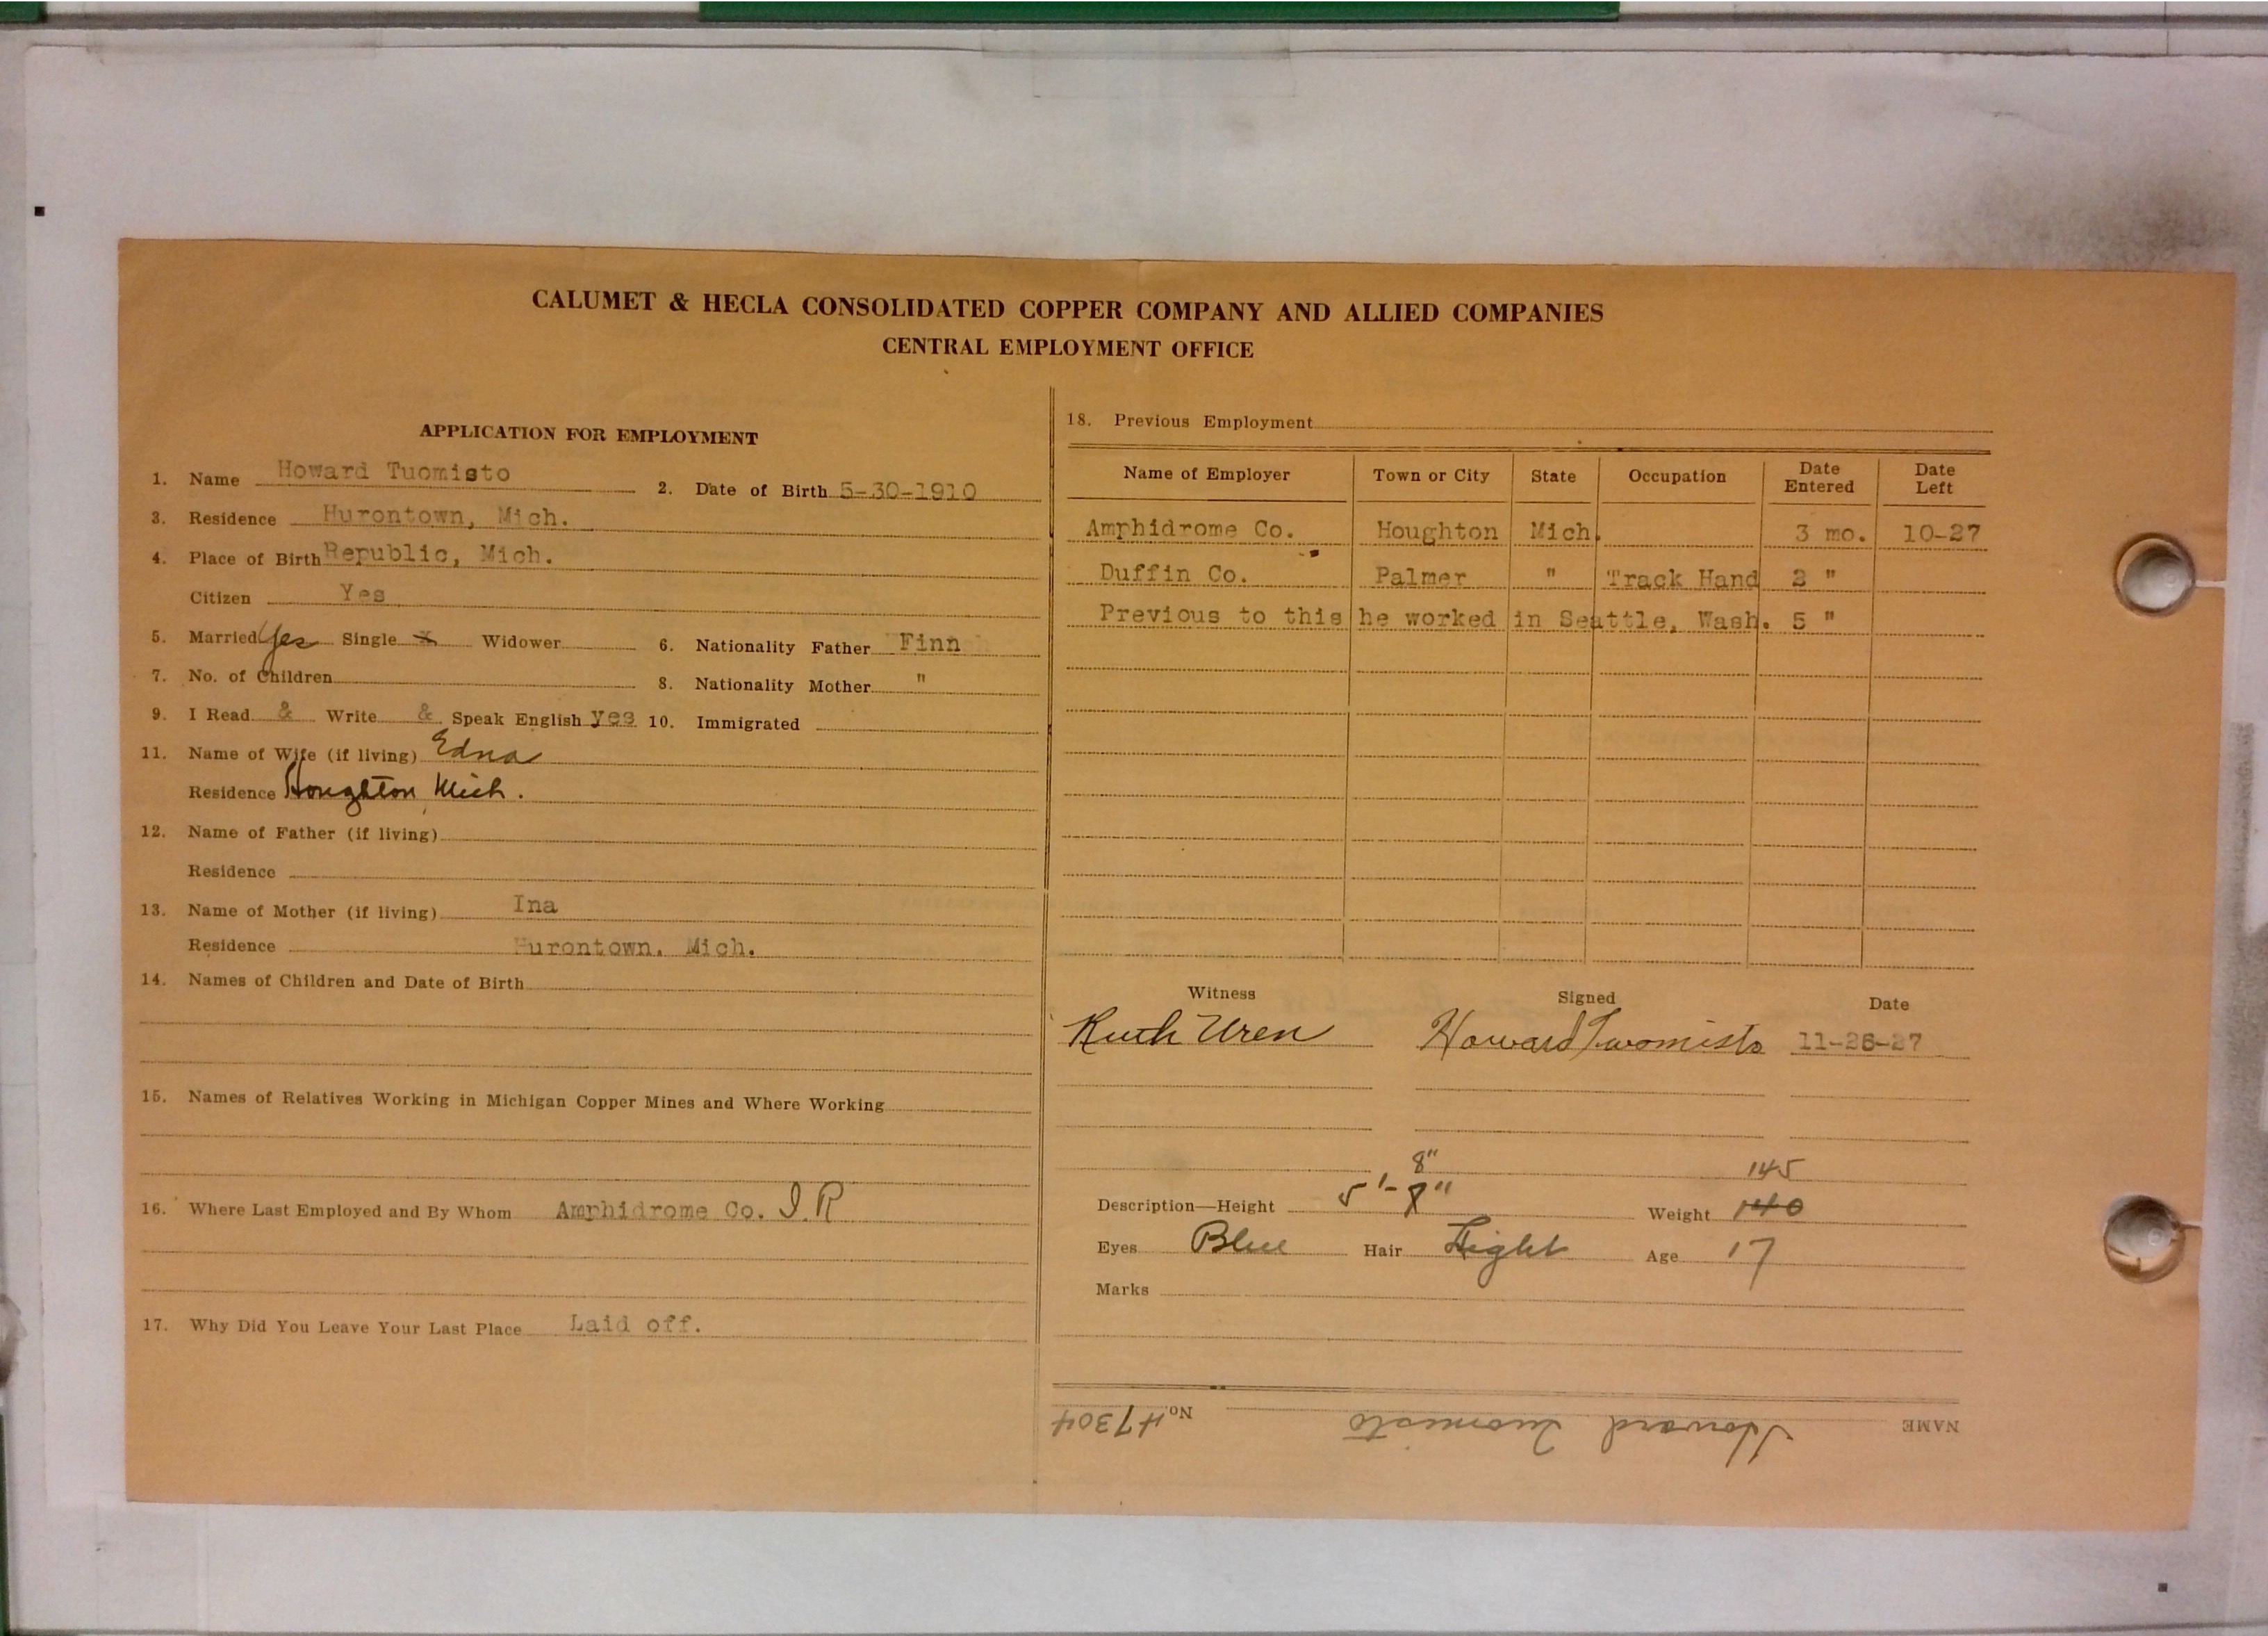 CALUMET & HECLA CONSOLIDATED COPPER COMPANY AND ALLIED COMPANIES
CENTRAL EMPLOYMENT OFFICE
APPLICATION FOR EMPLOYMENT
1. Name Howard Tuomisto 2. Date of Birth 5-30-1910
3. Residence Hurontown, Mich.
4. Place of Birth Republic, Mich.
Citizen Yes
5. Married Yes Single x Widower 6. Nationality Father Finn
7. No. of Children 8. Nationality Mother "
9. I Read & Write & Speak English yes 10. Immigrated
11. Name of Wife (if living) Edna
Residence Houghton Mich.
12. Name of Father (if living)
Residence
13. Name of Mother (if living) Ina
Residence Hurontown. Mich.
14. Names of Children and Date of Birth
15. Names of Relatives Working in Michigan Copper Mines and Where Working
16. Where Last Employed and By Whom Amphidrome Co. I R
17. Why Did You Leave Your Last Place Laid off.
18. Previous Employment
Name of Employer Town or City State Occupation Date Entered Date Left
Amphidrome Co. Houghton Mich. 3 mo. 10-27
Duffin Co. Palmer " Track Hand 2 "
Previous to this he worked in Seattle, Wash. 5 "
Witness Signed Date
Ruth Uren Howard Tuomisto 11-26-27
8" 145
Description—Height 5'- " Weight 140
Eyes Blue Hair Light Age 17
Marks
NAME Howard Tuomisto No. 47304